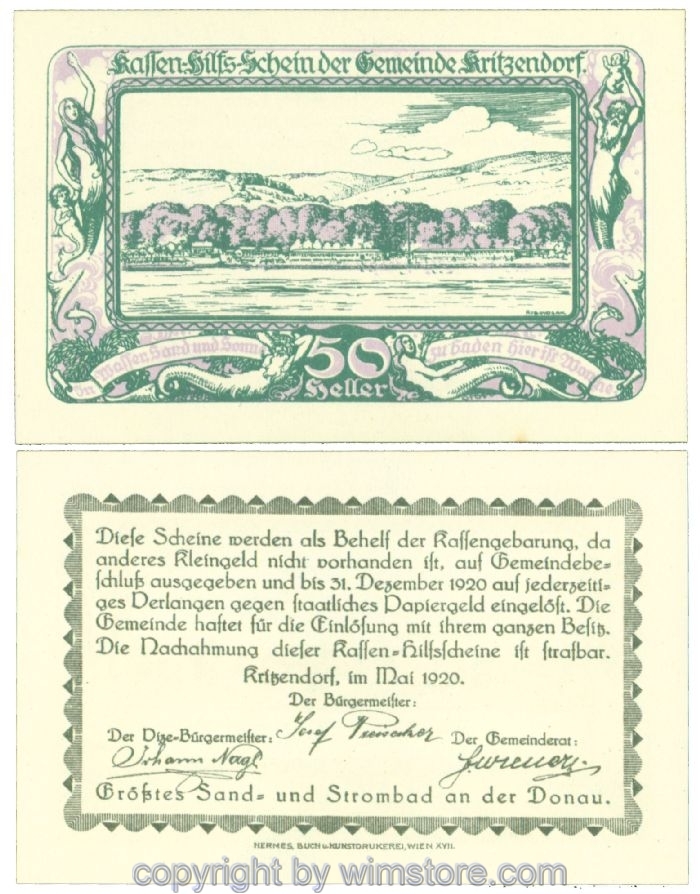 Kassen-Hilfs-Schein der Gemeinde Kritzendorf.
In Wasser, Sand und Sonne
zu baden hier ist Wonne
50
Heller
Diese Scheine werden als Behelf der Kassengebarung, da
anderes Kleingeld nicht vorhanden ist, auf Gemeindebe-
schluß ausgegeben und bis 31. Dezember 1920 auf jederzeiti-
ges Verlangen gegen staatliches Papiergeld eingelöst. Die
Gemeinde haftet für die Einlösung mit ihrem ganzen Besitz.
Die Nachahmung dieser Kassen-Hilfsscheine ist strafbar.
Kritzendorf, im Mai 1920.
Der Bürgermeister:
Der Vize-Bürgermeister: Josef Der Gemeinderat:
Johann Nagl
Größtes Sand- und Strombad an der Donau.
HERMES, BUCH u. KUNSTDRUKEREI, WIEN XVII.
copyright by wimstore.com